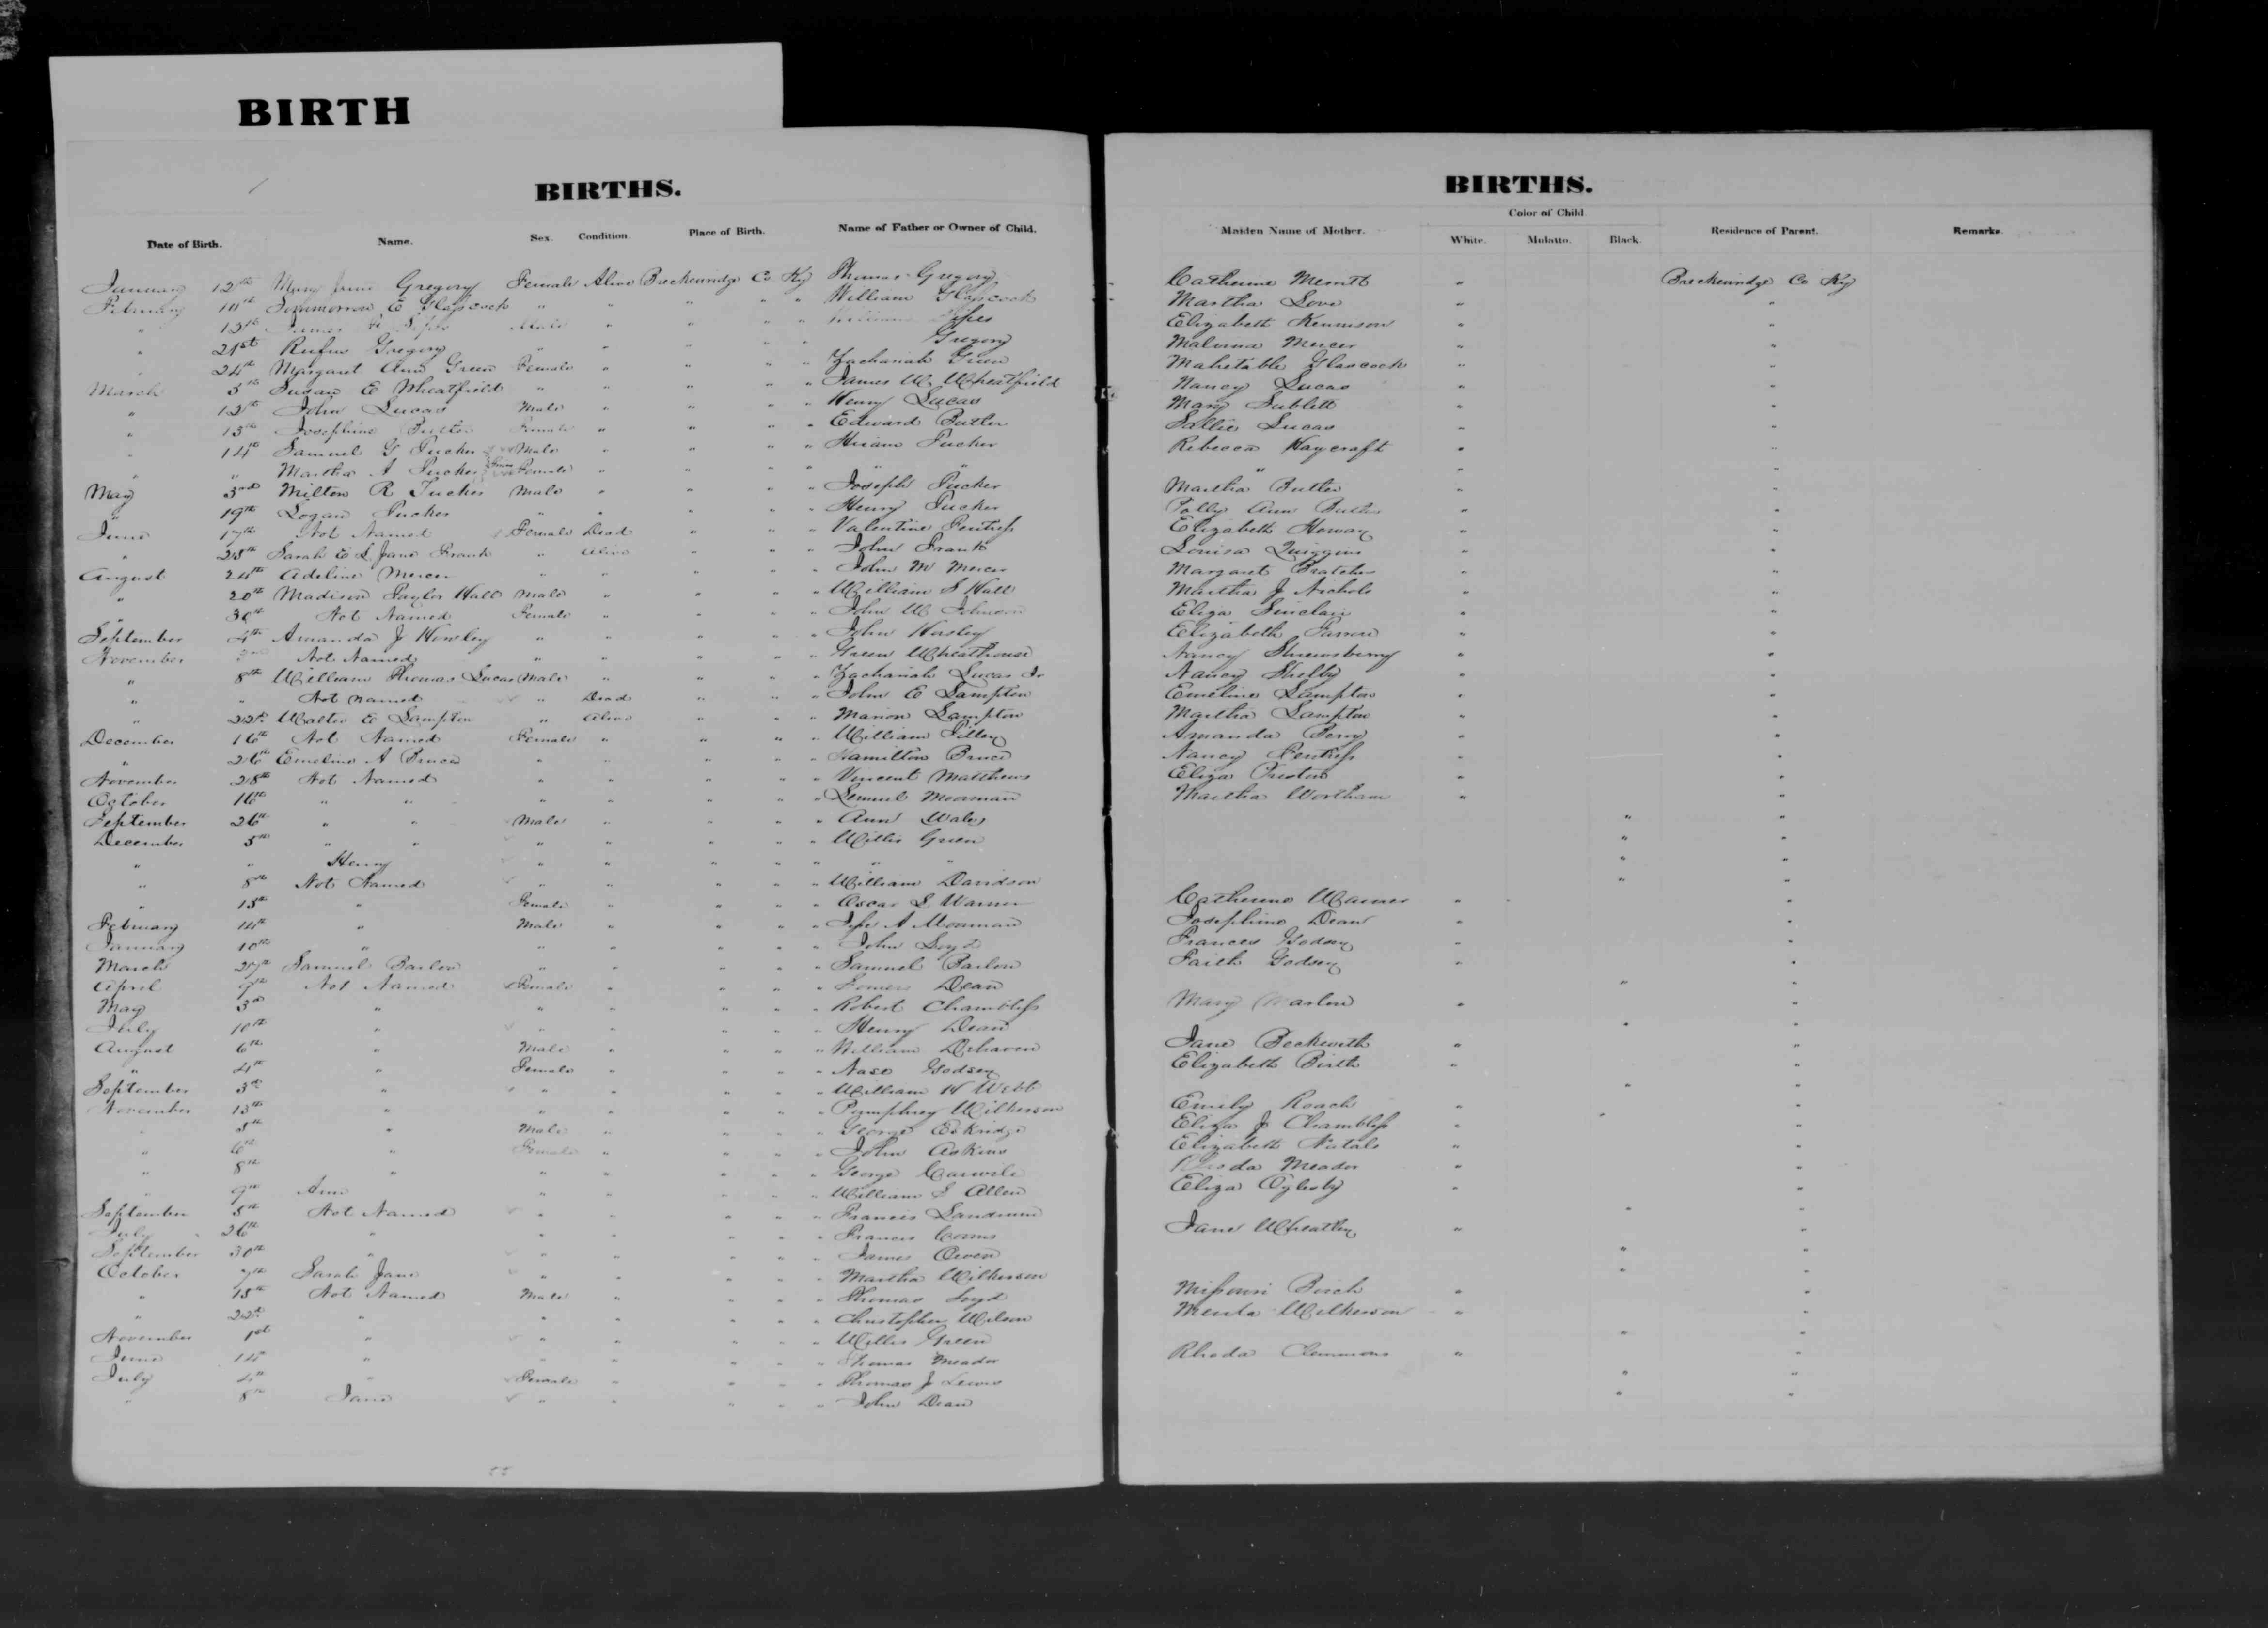 BIRTH
BIRTHS.
Date of Birth. Name. Sex. Condition. Place of Birth. Name of Father or Owner of Child.
January 12th Mary Jane Gregory Female Alive Breckenridge Co Ky Thomas Gregory
February 10th E Glasscock " " " " " William Glasscock
" 15th James Male " " " "
" 21st Rufus Gregory " " " " " Gregory
" 24th Margaret Ann Green Female " " " " Zachariah Green
March 5th Susan E Wheatfield " " " " " James W. Wheatfield
" 12th John Lucas Male " " " " Henry Lucas
" 13th Josephine Butler Female " " " " Edward Butler
" 14th Samuel G Tucker Male " " " " Hiram Tucker
" " Martha A Tucker Female " " " " " "
May 3rd Milton R Tucker Male " " " " Joseph Tucker
" 19th Logan Tucker " " " " " Henry Tucker
June 17th Not Named Female Dead " " " Valentine Fentress
" 25th Sarah E L Jane Frank " Alive " " " John Frank
August 24th Adeline Mercer " " " " " John M Mercer
" 20th Madison Taylor Hall Male " " " " William S Hall
" 30th Not Named Female " " " " John W Johnson
September 4th Amanda J Hensley " " " " " John Hensley
November Not Named " " " " " Green Wheathouse
" 8th William Thomas Lucas Male " " " " Zachariah Lucas Jr
" " Not Named " Dead " " " John E Lampton
" 22nd Walter E Lampton " Alive " " " Marion Lampton
December 16th Not Named Female " " " " William Pilley
" 26th Emeline A Bruce " " " " " Hamilton Bruce
November 28th Not Named " " " " " Vincent Matthews
October 16th " " " " " " " Lemuel Moorman
September 26th " " Male " " " " Ann Wales
December 5th " " " " " " " Willis Green
" " Henry " " " " " " "
" 8th Not Named " " " " " William Davidson
" 15th " Female " " " " Oscar S Warner
February 14th " Male " " " " A Moorman
January 10th " " " " " " John Loyd
March 27th Samuel Barlow " " " " " Samuel Barlow
April 9th Not Named Female " " " " Dean
May 3d " " " " " " Robert Chambless
July 10th " " " " " " Henry Dean
August 6th " Male " " " " William Dehaven
" 4th " Female " " " " Nase Godsey
September 3d " " " " " " William H Webb
November 13th " " " " " " Pumphrey Wilkerson
" 5th " Male " " " " George Eskridge
" 6th " Female " " " " John Askins
" 8th " " " " " " George Carwile
" 9th Ann " " " " " William S Allen
September 5th Not Named " " " " " Francis Landrum
July 26th " " " " " " Francis Cooms
September 30th " " " " " " James Owen
October 7th Sarah Jane " " " " " Martha Wilkerson
" 15th Not Named Male " " " " Thomas Loyd
" 22d " " " " " " Christopher Wilson
November 1st " " " " " " Willis Green
June 14th " " " " " " Thomas Meador
July 4th " Female " " " " Thomas J Lewis
" 8th Jane " " " " " John Dean
BIRTHS.
Color of Child.
Maiden Name of Mother. White. Mulatto. Black. Residence of Parent. Remarks.
Catherine Merritt " Breckenridge Co Ky
Martha Love " "
Elizabeth Kennison " "
Malvina Mercer " "
Mahitable Glascock " "
Nancy Lucas " "
Mary Sublett " "
Sallie Lucas " "
Rebecca Haycraft " "
" " "
Martha Butler " "
Polly Ann Butler " "
Elizabeth Howay " "
Louisa Quiggins " "
Margaret Bratcher " "
Martha J Nichols " "
Eliza Sinclair " "
Elizabeth " "
Nancy Shrewsberry " "
Nancy Shelby " "
Emeline Lampton " "
Martha Lampton " "
Amanda Berry " "
Nancy Fentress " "
Eliza Preston " "
Martha Wortham " "
" "
" "
" "
" "
Catherine Warner " "
Josephine Dean " "
Frances Godsey " "
Faith Godsey " "
" "
Mary " "
" "
Jane Beckwith " "
Elizabeth Birth " "
" "
Emily Roach " "
Eliza J Chambless " "
Elizabeth " "
Rhoda Meador " "
Eliza Oglesby " "
" "
Jane Wheatley " "
" "
" "
Missouri Birch " "
Wilkerson " "
" "
Rhoda Clemmons " "
" "
" "